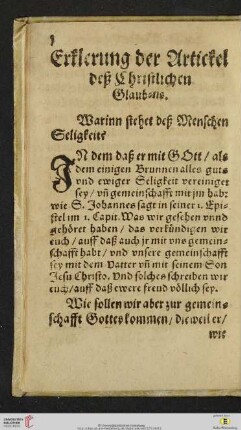 Erklerung der Artickel
deß Christlichen
Glaubens.
Warinn stehet deß Menschen
Seligkeit?
IN dem daß er mit GOtt / als
dem einigen Brunnen alles guts
vnd ewiger Seligkeit vereiniget
sey / vñ gemeinschafft mit jm hab:
wie S. Johannes sagt in seiner 1. Epi-
stel im 1. Capit. Was wir gesehen vnnd
gehöret haben / das verkündigen wir
euch / auff daß auch jr mit vns gemein-
schafft habt / vnd vnsere gemeinschafft
sey mit dem Vatter vñ mit seinem Son
Jesu Christo. Vnd solches schreiben wir
euch / auff daß ewere freud völlich sey.
Wie sollen wir aber zur gemein-
schafft Gottes kommen / dieweil er /
wie